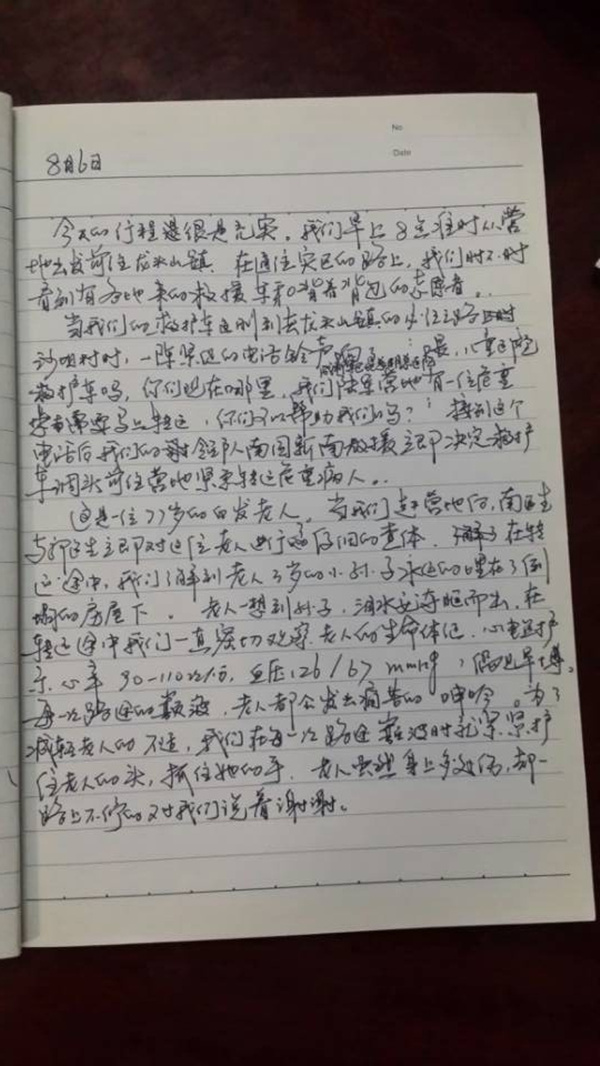 No
Date
8月6日
今天的行程还很是充实。我们早上8点准时从营
地出发前往龙头山镇。在通往灾区的路上,我们时不时
看到有各地来的救援车和背着背包的志愿者。
当我们的救护车达到去龙头山镇的必经之路
沙坝村时,一阵急促的电话铃声响了
救护车吗,你们现在哪里,我们陆军营地有一位危重
患者需要马上转运,你们可以帮助我们吗?接到这个
电话后我们的领队南国新南教授立即决定救护
车调头前往营地紧急转运危重病人。
这是一位77岁的白发老人。当我们赶到营地后,南医生
与郭医生立即对这位老人进行了仔细的查体。在转
运途中,我们了解到老人3岁的小孙子永远的埋在了倒
塌的房屋下。老人一想到孙子,泪水便夺眶而出,在
转运途中我们一直密切观察老人的生命体征,心电监护
示:心率90-110次/分,血压126/67mmHg,偶见早搏。
每一次路途的颠簸,老人都会发出痛苦的呻吟。为了
减轻老人的不适,我们在每一次路途颠簸时就紧紧护
住老人的头,抓住她的手。老人虽然身上多处伤,却一
路上不停的对我们说着谢谢。